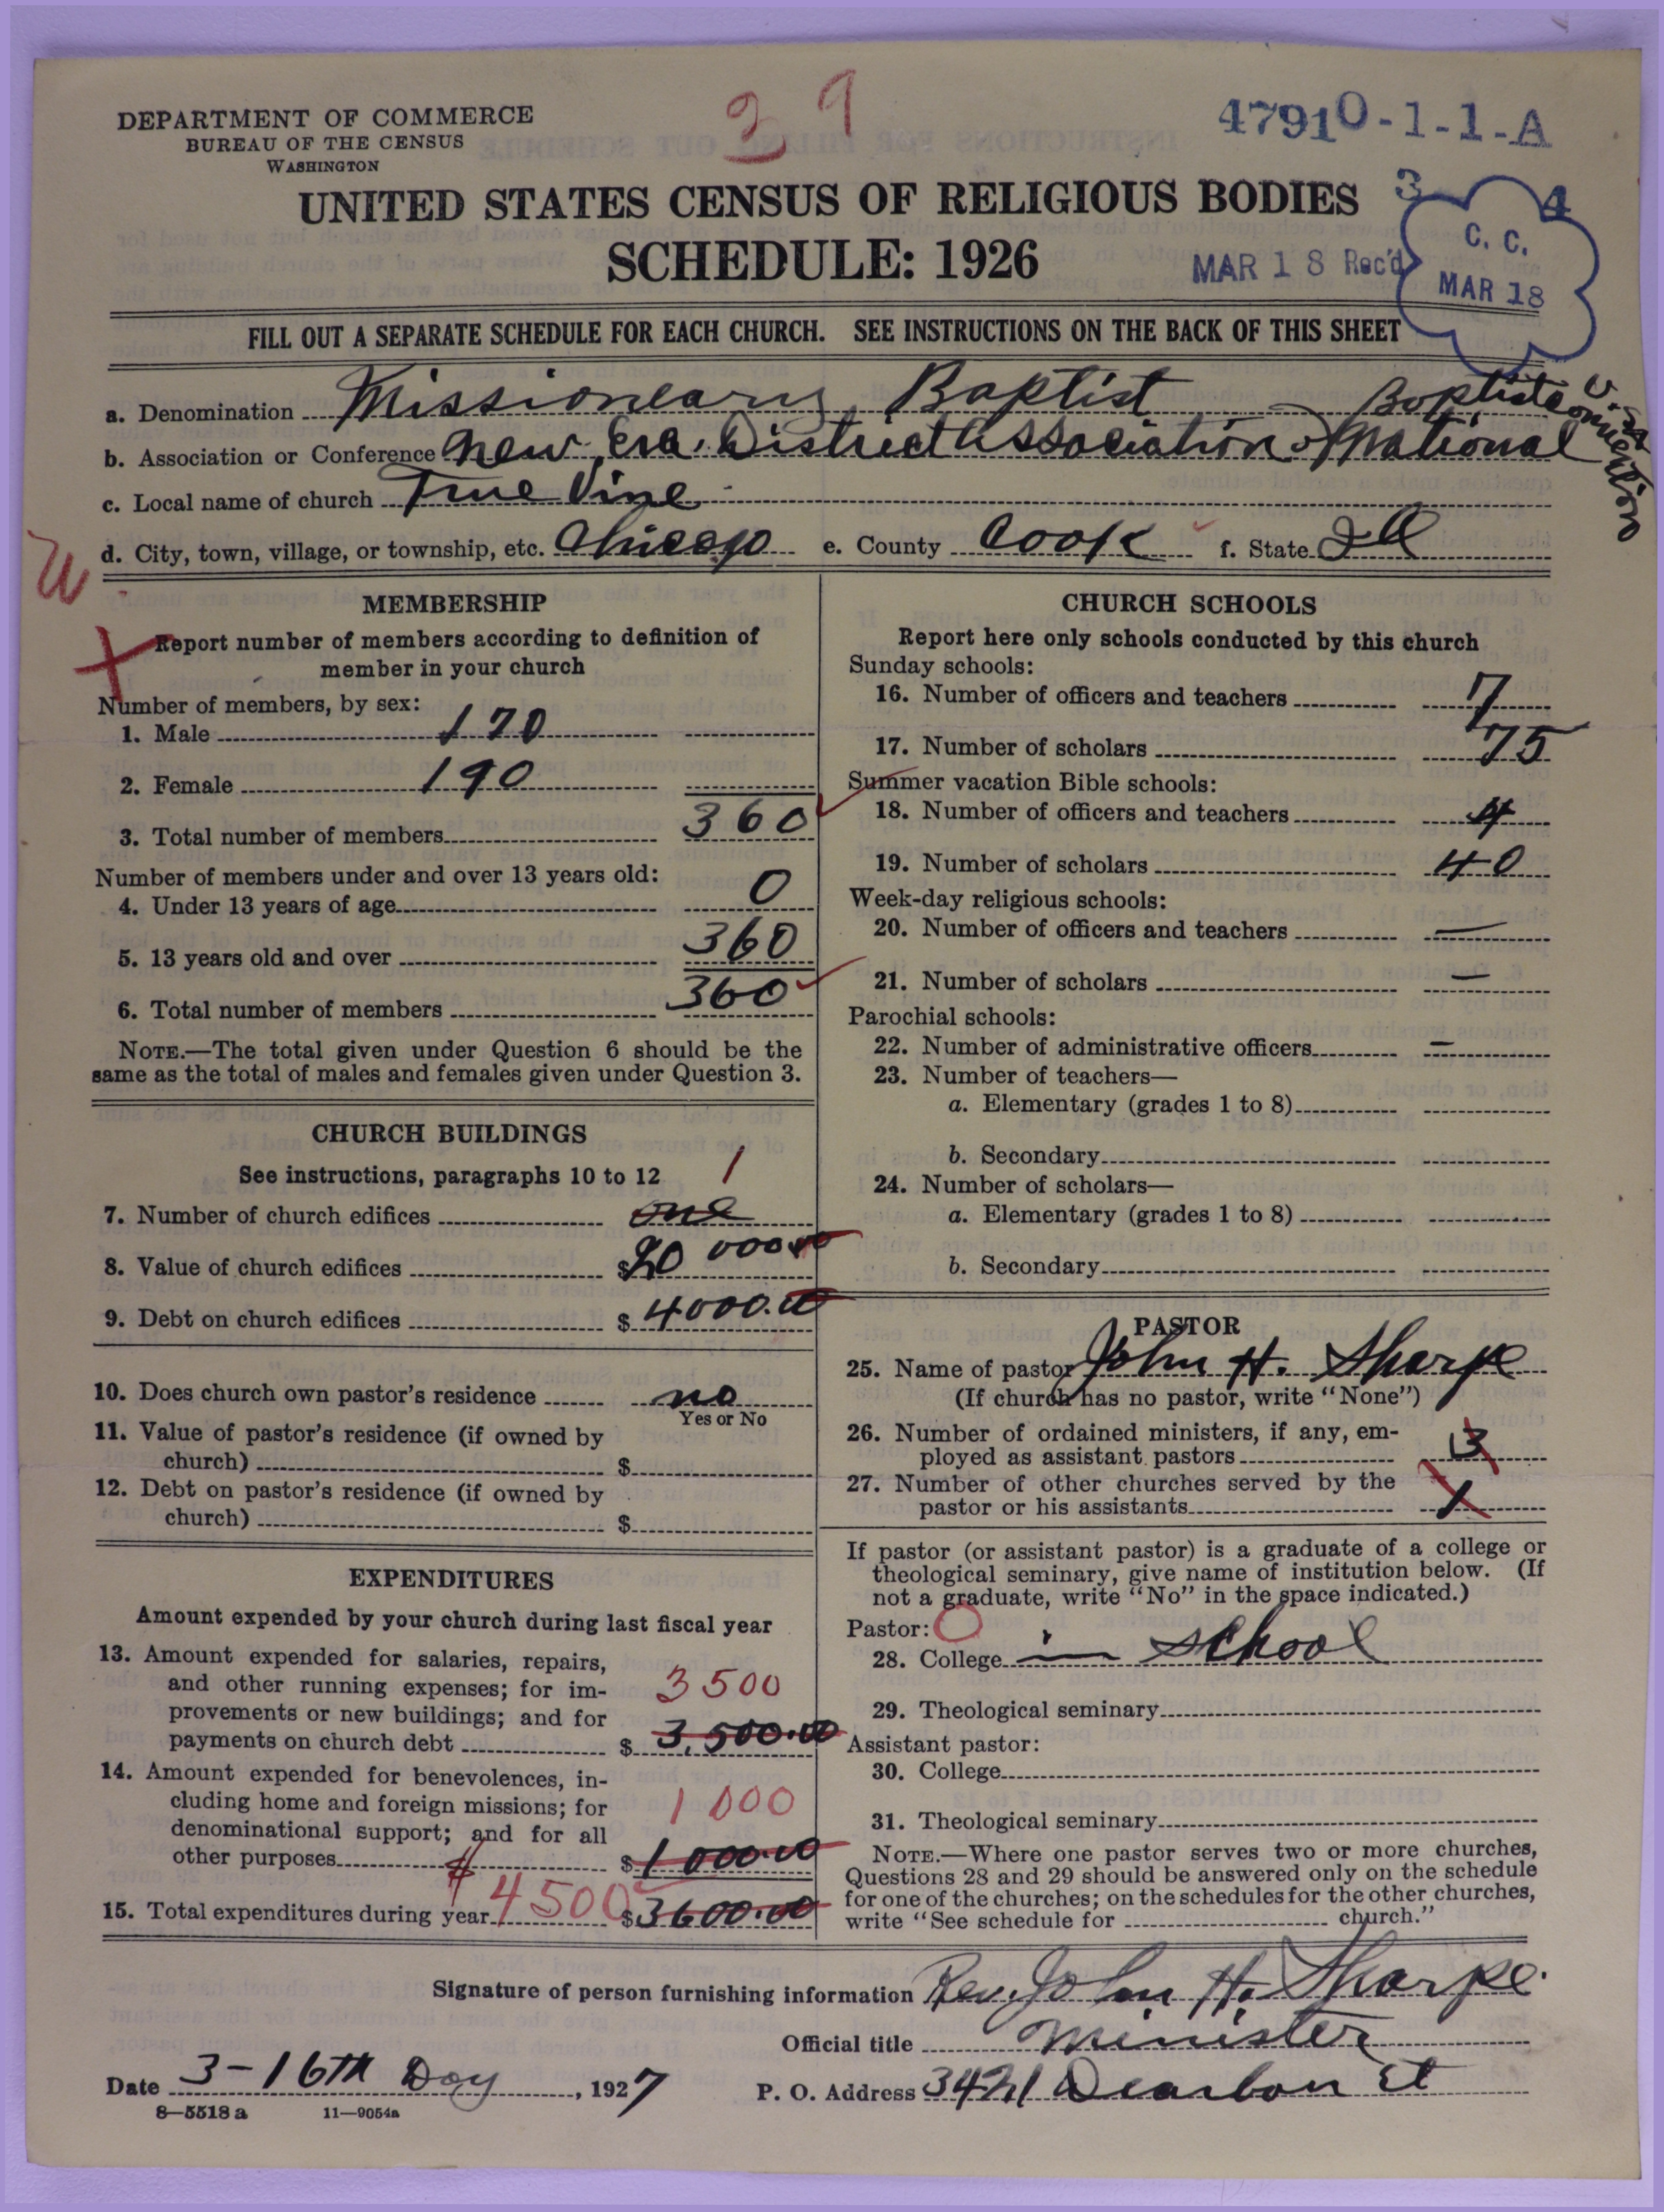 39
47910-1-1-A
DEPARTMENT OF COMMERCE
BUREAU OF THE CENSUS
WASHINGTON
UNITED STATES CENSUS OF RELIGIOUS BODIES
SCHEDULE: 1926
MAR 18 Rec'd
3 4
C. C.
MAR 18
FILL OUT A SEPARATE SCHEDULE FOR EACH CHURCH. SEE INSTRUCTIONS ON THE BACK OF THIS SHEET
a. Denomination Missioneary Baptist
b. Association or Conference New Era District Association & National Baptist Convention U.S.A
c. Local name of church True Vine
d. City, town, village, or township, etc. Chicago e. County Cook f. State Ill
W
MEMBERSHIP
Report number of members according to definition of
member in your church
Number of members, by sex:
1. Male 170
2. Female 190
3. Total number of members 360
Number of members under and over 13 years old:
4. Under 13 years of age 0
5. 13 years old and over 360
6. Total number of members 360
NOTE.—The total given under Question 6 should be the
same as the total of males and females given under Question 3.
CHURCH BUILDINGS
See instructions, paragraphs 10 to 12
1
7. Number of church edifices one
8. Value of church edifices $20 000.00
9. Debt on church edifices $4000.00
10. Does church own pastor's residence no
Yes or No
11. Value of pastor's residence (if owned by
church) $
12. Debt on pastor's residence (if owned by
church) $
EXPENDITURES
Amount expended by your church during last fiscal year
13. Amount expended for salaries, repairs,
and other running expenses; for im-
provements or new buildings; and for
payments on church debt $3,500.00
3500
14. Amount expended for benevolences, in-
cluding home and foreign missions; for
denominational support; and for all
other purposes $1000.00
1000
15. Total expenditures during year $4500 $3600.00
CHURCH SCHOOLS
Report here only schools conducted by this church
Sunday schools:
16. Number of officers and teachers 7
17. Number of scholars 75
Summer vacation Bible schools:
18. Number of officers and teachers 4
19. Number of scholars 40
Week-day religious schools:
20. Number of officers and teachers —
21. Number of scholars —
Parochial schools:
22. Number of administrative officers —
23. Number of teachers—
a. Elementary (grades 1 to 8)
b. Secondary
24. Number of scholars—
a. Elementary (grades 1 to 8)
b. Secondary
PASTOR
25. Name of pastor John H. Sharpe
(If church has no pastor, write "None")
26. Number of ordained ministers, if any, em-
ployed as assistant pastors 3
27. Number of other churches served by the
pastor or his assistants 1
If pastor (or assistant pastor) is a graduate of a college or
theological seminary, give name of institution below. (If
not a graduate, write "No" in the space indicated.)
Pastor: O
28. College in school
29. Theological seminary
Assistant pastor:
30. College
31. Theological seminary
NOTE.—Where one pastor serves two or more churches,
Questions 28 and 29 should be answered only on the schedule
for one of the churches; on the schedules for the other churches,
write "See schedule for church."
Signature of person furnishing information Rev. John H. Sharpe.
Official title Minister
Date 3-16th Day, 1927 P. O. Address 3421 Dearbon St
8—5518 a 11—9054a